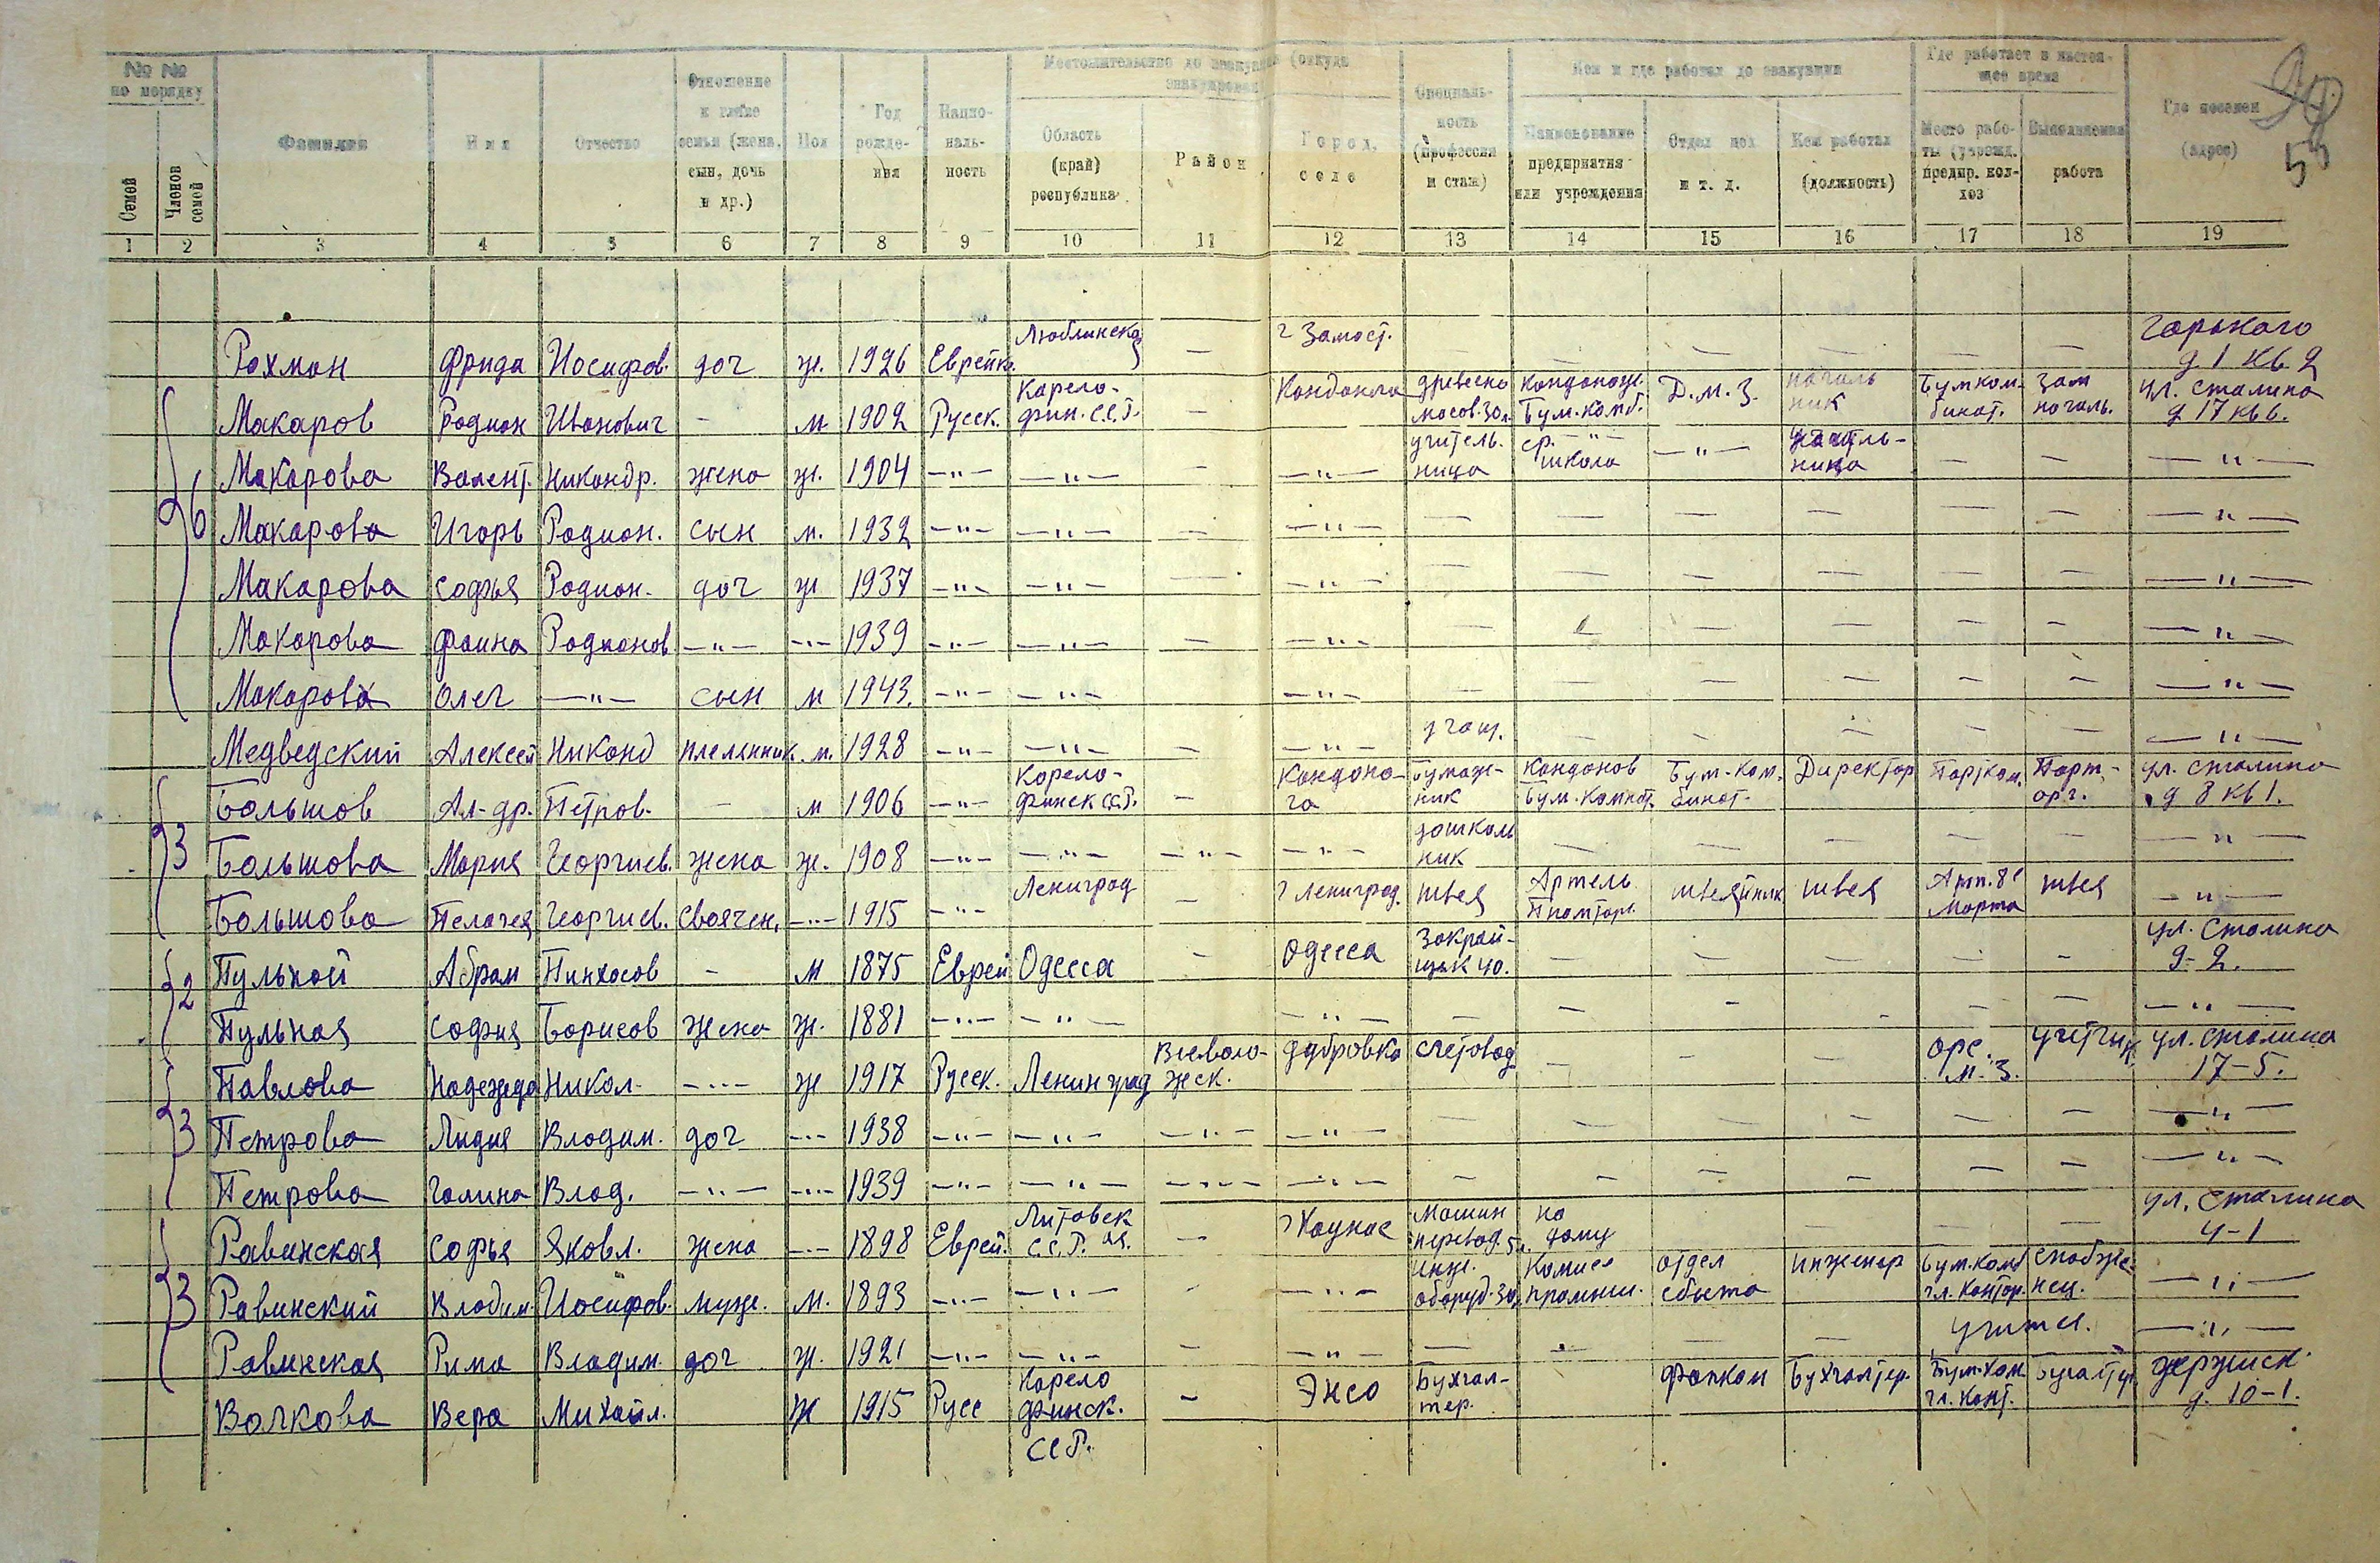 № № по порядку | Фамилия | Имя | Отчество | Отношение к главе семьи (жена, сын, дочь и др.) | Пол | Год рождения | Нацио-наль-ность | Местожительство до эвакуации (откуда эвакуирован) | Специаль-ность (профессия и стаж) | Кем и где работал до эвакуации | Где работает в настоя-щее время | Где поселен (адрес)
Семей | Членов семей | Область (край) республика | Район | Город, село | Наименование предприятия или учреждения | Отдел цех и т. д. | Кем работал (должность) | Место рабо-ты (учрежд. предпр. кол-хоз | Выполняемая работа
1 2 3 4 5 6 7 8 9 10 11 12 13 14 15 16 17 18 19
Рохман Фрида Иосифов. доч ж. 1926 Еврейк. Люблинская — г Замост. — — — — — — Горького д 1 кв 2
6 Макаров Родион Иванович - м 1902 Русск. Карело-фин. С.С.Р. — Кондопога древесно масов. Кондопож. Бум. комб. Д.М.З. начальник Бумком-бинат. Зам началь. ул. Сталина д 17 кв 6.
Макарова Валент. Никандр. жена ж. 1904 —"— —"— — —"— учитель-ница ср. —"— школа —"— учитель-ница — — —"—
Макарова Игорь Родион. сын м. 1932 —"— —"— — —"— — — — — — — —"—
Макарова Софья Родион. доч ж 1937 —"— —"— — —"— — — — — — — —"—
Макарова Фаина Родионов —"— —"— 1939 —"— —"— — —"— — — — — — — —"—
Макарова Олег —"— сын м 1943. —"— —"— —"— — — — — — — —"—
Медведский Алексей Никанд племянник. м. 1928 —"— —"— — —"— учащ. — — — — — —"—
3 Большов Ал-др. Петров. - м 1906 —"— Карело-финск ССР. — Кондопо-га бумаж-ник Кондопов Бум. Комбт. Бум-Ком-бинат. Директор Партком. Парт-орг. ул. Сталина д 8 кв 1.
Большова Мария Георгиев. жена ж. 1908 —"— —"— —"— —"— дошколь ник — — — — — —"—
Большова Пелагея Георгиев. Своячен. —"— 1915 —"— Лениград — г Лениград. швея Артель швейник швея Арт. 8е Марта швея —"—
2 Пульной Абрам Пинхосов - м 1875 Еврей Одесса — Одесса Закрой-щик 40. — — — — — ул. Сталина 9-2.
Пульная София Борисов жена ж. 1881 —"— —"— —"— — — — — — — —"—
3 Павлова Надежда Никол. —"— ж 1917 Русск. Ленинград Всеволо-жск. Дубровка Счетовод — — — орс. М.З. учётчик ул. Сталина 17-5.
Петрова Лидия Владим. доч —"— 1938 —"— —"— —"— —"— — — — — — — —"—
Петрова Галина Влад. —"— —"— 1939 —"— —"— —"— —"— — — — — — — —"—
3 Равинская Софья Яковл. жена —"— 1898 Еврей. Литовск ая С.С.Р. — г Каунас Машин перевод. 5 л. на дому — — — — ул. Сталина 4-1
Равинский Владим. Иосифов. муж. м. 1893 —"— —"— - —"— инж. оборуд. Комисс промыш. отдел сбыта инженер Бум. комб гл. контор. снабже-нец. —"—
Равинская Рима Владим. доч ж. 1921 —"— —"— — —"— — — — — учится. —"—
Волкова Вера Михайл. Ж 1915 Русс Карело финск. ССР. - Энсо Бухгал-тер. Бухгалтер. Бум. Ком. гл. конт. Бугалтер Держиск. д. 10-1.